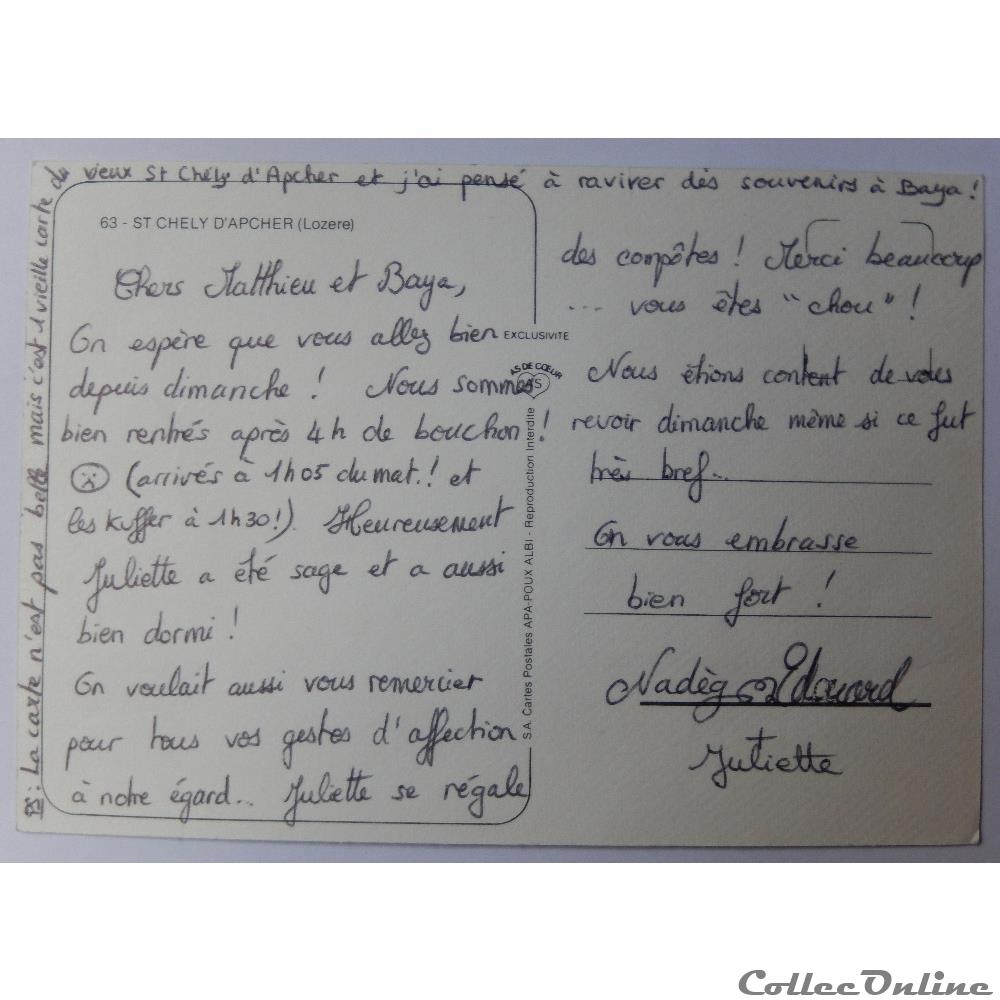 63 - ST CHELY D'APCHER (Lozere)
Chers Matthieu et Baya,
On espère que vous allez bien
depuis dimanche ! Nous sommes
bien rentrés après 4h de bouchon !
(arrivés à 1h05 du mat.! et
les Kuffer à 1h30!). Heureusement
Juliette a été sage et a aussi
bien dormi !
On voulait aussi vous remercier
pour tous vos gestes d'affection
à notre égard... Juliette se régale
EXCLUSIVITE
AS DE CŒUR
S.A. Cartes Postales APA-POUX ALBI - Reproduction Interdite
des compôtes ! Merci beaucoup
... vous êtes "chou" !
Nous étions content de vous
revoir dimanche même si ce fut
très bref...
On vous embrasse
bien fort !
Nadèg Edouard
Juliette
PS: La carte n'est pas belle mais c'est 1 vieille carte du
vieux St Chély d'Apcher et j'ai pensé à raviver dès souvenirs à Baya !
CollecOnline